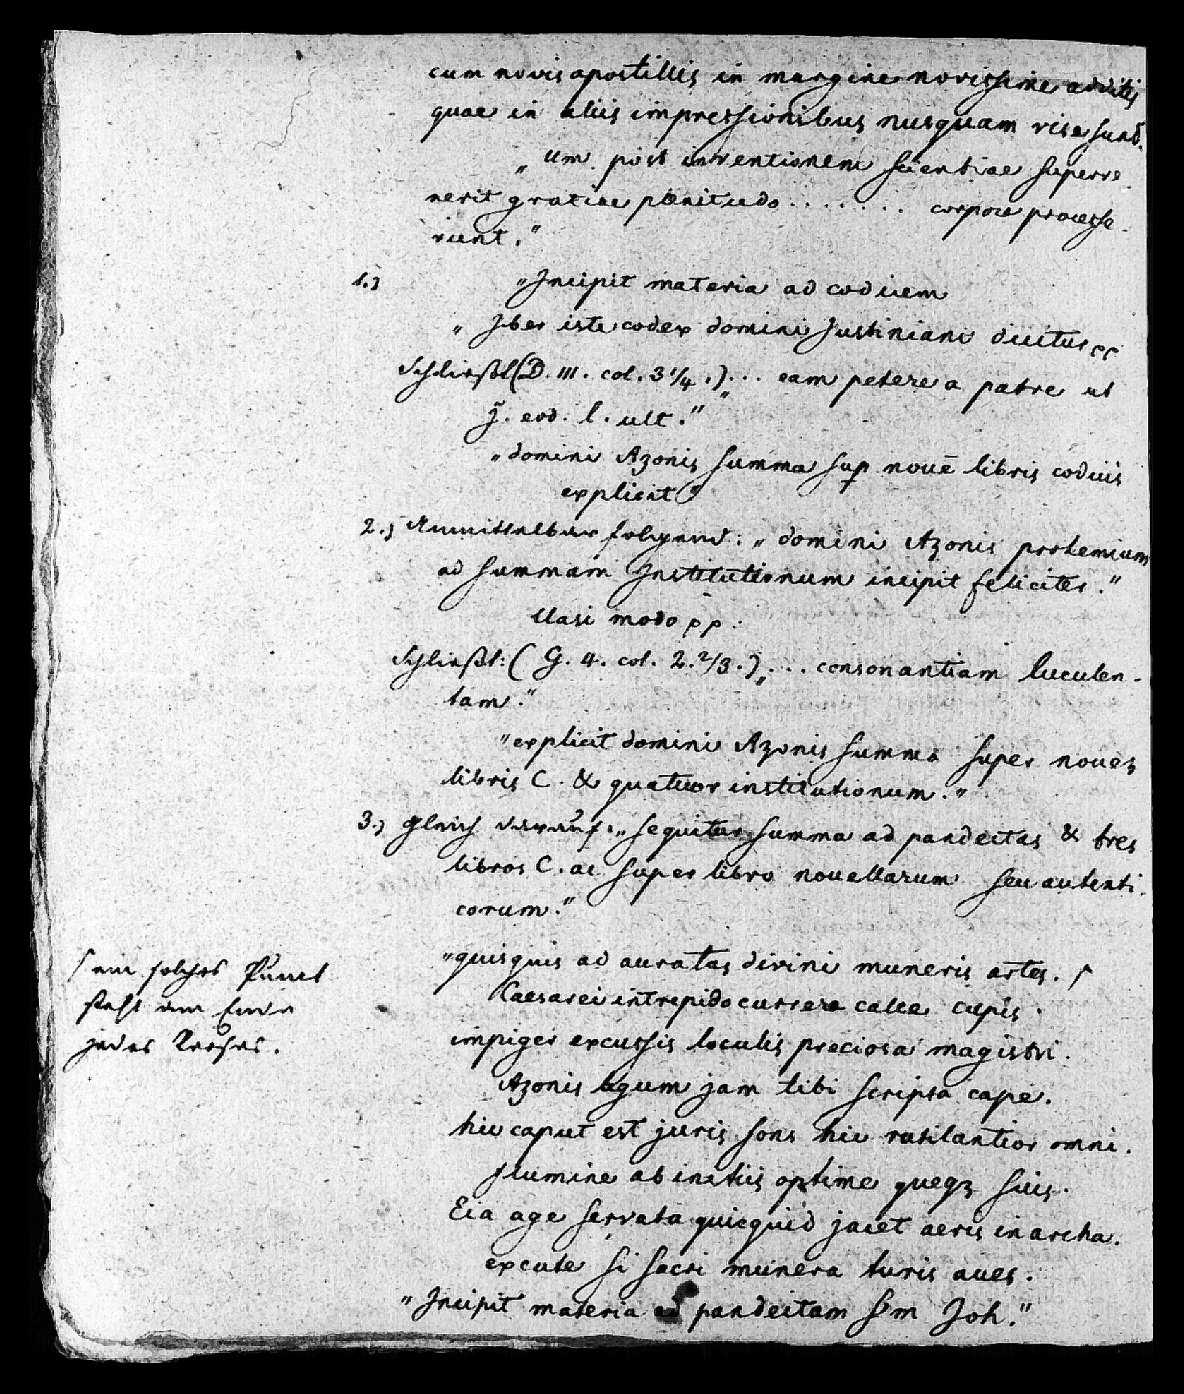 cum novis apostillis in margine novissime additis
quae in aliis impressionibus nusquam visa sunt.
„ Um post inventionem scientiae superve-
nerit gratiae plenitudo . . . . . . . corpore processe-
runt."
1.) „Incipit materia ad codicem
„ Iber iste codex domini Justiniani dicitur pp
Schließt (D. III. col. 3 1/4.) „ . . . eam petere a patre ut
j. eod. l. ult."
„domini Azonis summa sup novē libris codicis
explicit"
2.) Unmittelbar folgend: „domini Azonis prohemium
ad summam Institutionum incipit feliciter."
Uasi modo pp.
Schließt: ( G. 4. col. 2. 2/3.) „ . . . consonantiam luculen-
tam."
"explicit domini Azonis summa super novēz
libris C. & quatuor institutionum."
3.) gleich darauf: „sequitur summa ad pandectas & tres
libros C. ac super libro novellarum seu autenti-
corum."
„quisquis ad auratas divini muneris artes. /
Caesarei intrepido currere calle cupis.
/ ein solches Punct
steht am Ende
jedes Verses.
impiger excussis loculis preciosa magistri.
Azonis legum jam tibi scripta cape.
hic caput est juris fons hic rutilantior omni.
flumine ab initiis optime queqz suis.
Eia age servata quicquid jacet aeris in archa.
excute si sacri munera turis aues.
„Incipit materia ad pandectam sm Joh."